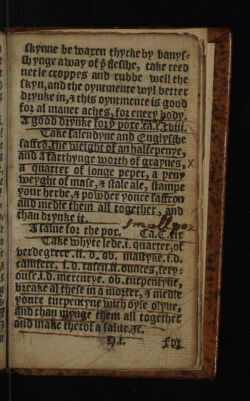 skynne be waxen thycke by vanys-
shynge away of yͤ flesshe, take reed
netle croppes and rubbe well the
skyn, and the oyntmente wyl better
drynke in, & this oyntmente is good
for al maner aches, for euery body.
A good drynke for yͤ pore. Ca. C. xviii.
Take salendyne and Englysshe
saffrō, the weight of an halfepenye,
and a farthynge worth of graynes, x
a quarter of longe peper, a peny
weyght of mase, & stale ale, stampe
your herbe, & powder youre saffron
and medle them all together, and
than drynke it. small pox
A salue for the por. Ca. C. xix
Take whyte lede .i. quarter, of
verdegrece .ii. d. ob. mastyke .i. d.
camfere .i. d. rosen .ii. ounces,
.i. d. mercurye. ob. turpentyne,
breake al these in a morter, & medle
youre turpentyne with oyle olyue,
and than mynge them all together
and make therof a salue. &c.
for